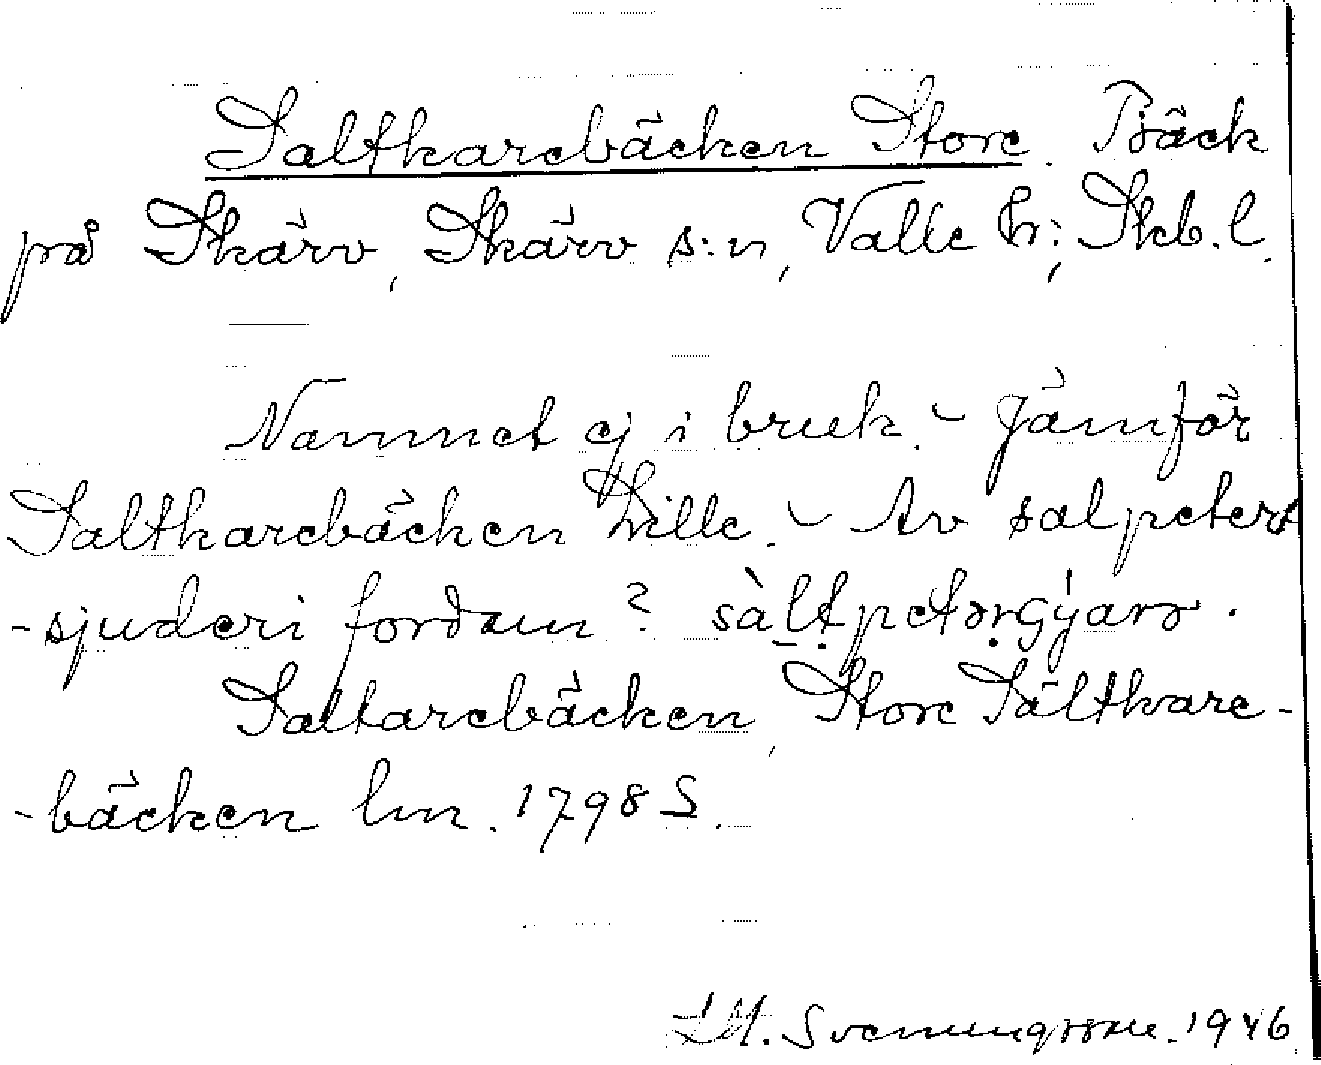 Saltkarebäcken Store. Bäck
på Skärv, Skärv s:n, Valle hr; Skb. l.
Namnet ej i bruk. - Jämför
Saltkarebäcken Lille. - Av salpeter
-sjuderi fordum? sàltpetərgýarə.
Saltarebäcken, Store Saltkare-
-bäcken lm. 1798 S.
Svenungsson. 1946